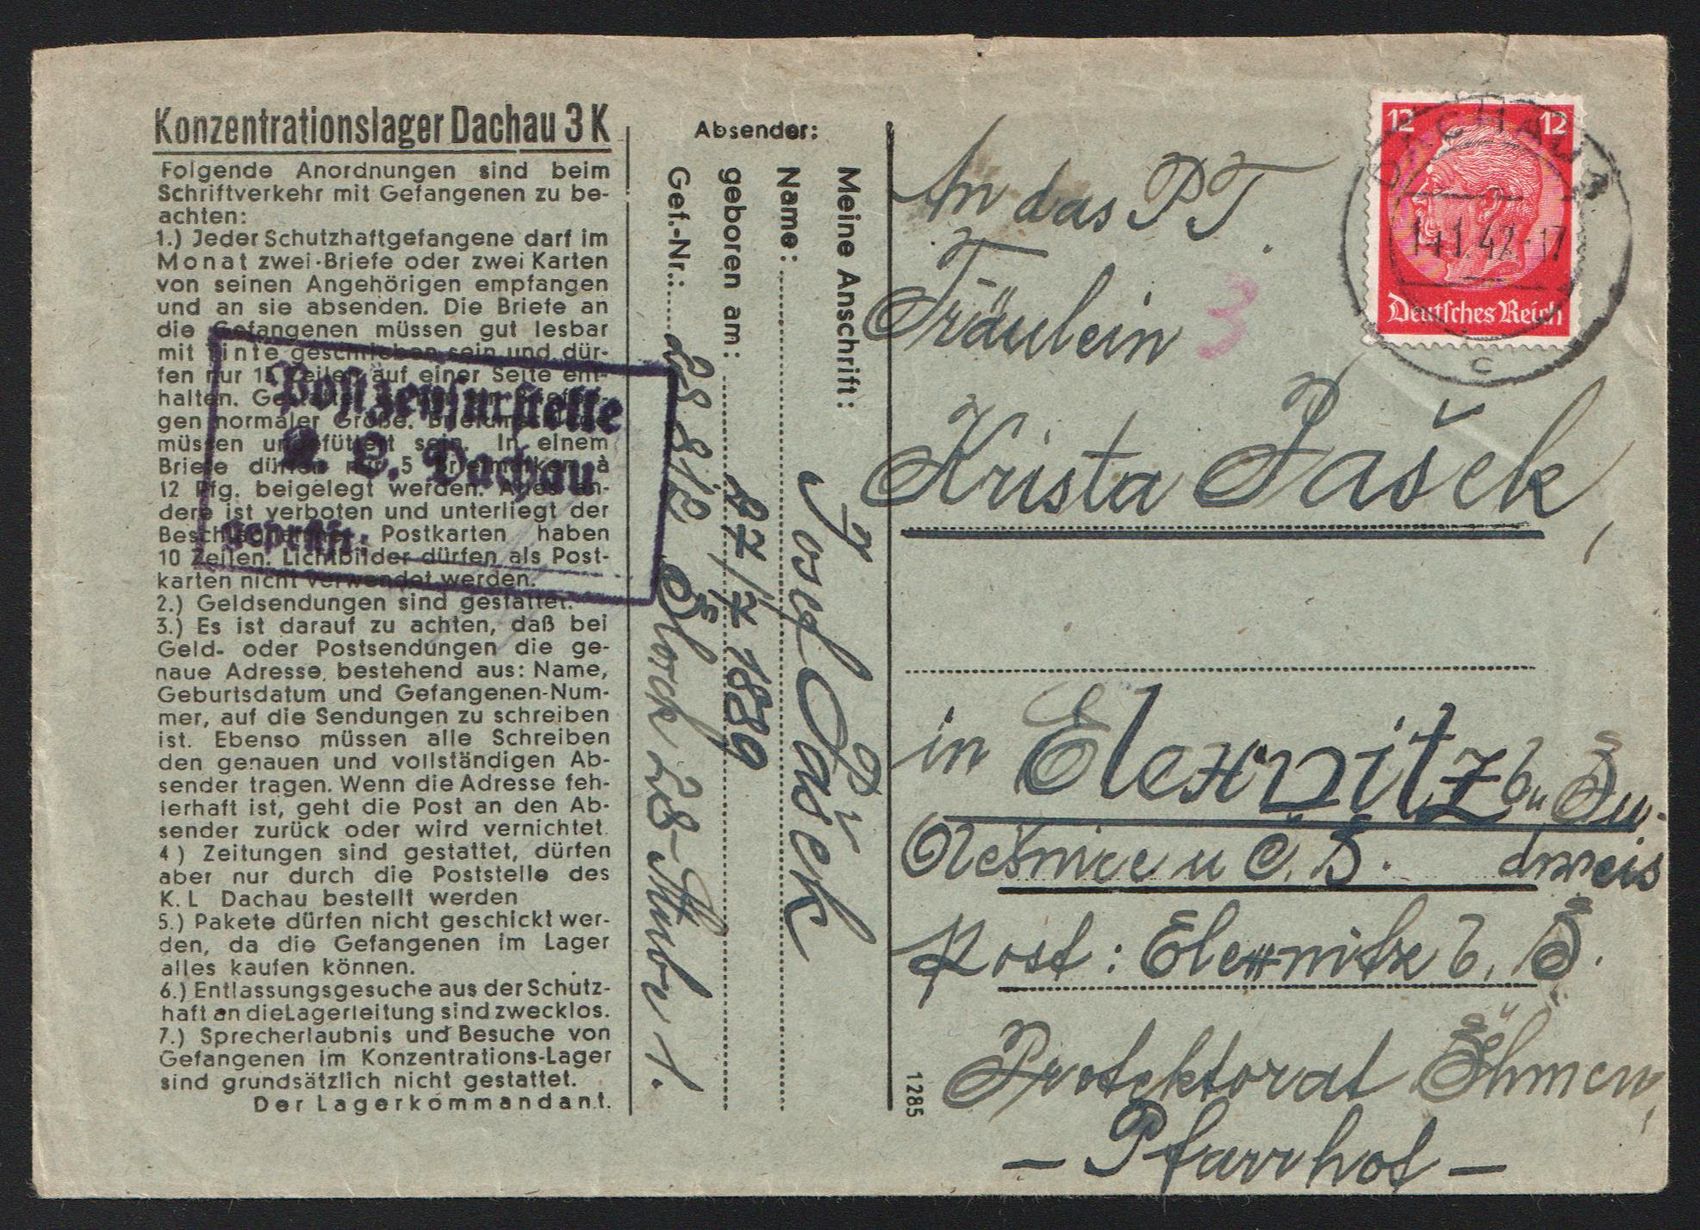 Konzentrationslager Dachau 3 K
Folgende Anordnungen sind beim
Schriftverkehr mit Gefangenen zu be-
achten:
1.) Jeder Schutzhaftgefangene darf im
Monat zwei Briefe oder zwei Karten
von seinen Angehörigen empfangen
und an sie absenden. Die Briefe an
die Gefangenen müssen gut lesbar
mit Tinte geschrieben sein und dür-
fen nur 15 Zeilen auf einer Seite ent-
halten.
gen normaler Größe.
müssen ungefüttert sein. In einem
Briefe dürfen nur 5 Briefmarken à
12 Pfg. beigelegt werden. Alles an-
dere ist verboten und unterliegt der
Postkarten haben
10 Zeilen. Lichtbilder dürfen als Post-
karten nicht verwendet werden.
2.) Geldsendungen sind gestattet.
3.) Es ist darauf zu achten, daß bei
Geld- oder Postsendungen die ge-
naue Adresse, bestehend aus: Name,
Geburtsdatum und Gefangenen-Num-
mer, auf die Sendungen zu schreiben
ist. Ebenso müssen alle Schreiben
den genauen und vollständigen Ab-
sender tragen. Wenn die Adresse feh-
lerhaft ist, geht die Post an den Ab-
sender zurück oder wird vernichtet.
4) Zeitungen sind gestattet, dürfen
aber nur durch die Poststelle des
K. L Dachau bestellt werden
5.) Pakete dürfen nicht geschickt wer-
den, da die Gefangenen im Lager
alles kaufen können.
6.) Entlassungsgesuche aus der Schutz-
haft an die Lagerleitung sind zwecklos.
7.) Sprecherlaubnis und Besuche von
Gefangenen im Konzentrations-Lager
sind grundsätzlich nicht gestattet.
Der Lagerkommandant.
Postzensurstelle
K. L. Dachau
Geprüft:
Absender:
Meine Anschrift:
Name: Josef Pašek
geboren am: 27/7 1889
Gef.-Nr.: 28812 Block 28-Stube 1.
1285
An das P.T.
Fräulein
3
Krista Pašek,
in Elexnitz b. Bu-
dweis
u Č. B.
Post: Elexnitz b. B.
Protektorat Böhmen,
- Pfarrhof -
12 12
Deutsches Reich
DACHAU
14.1.42.-17
c